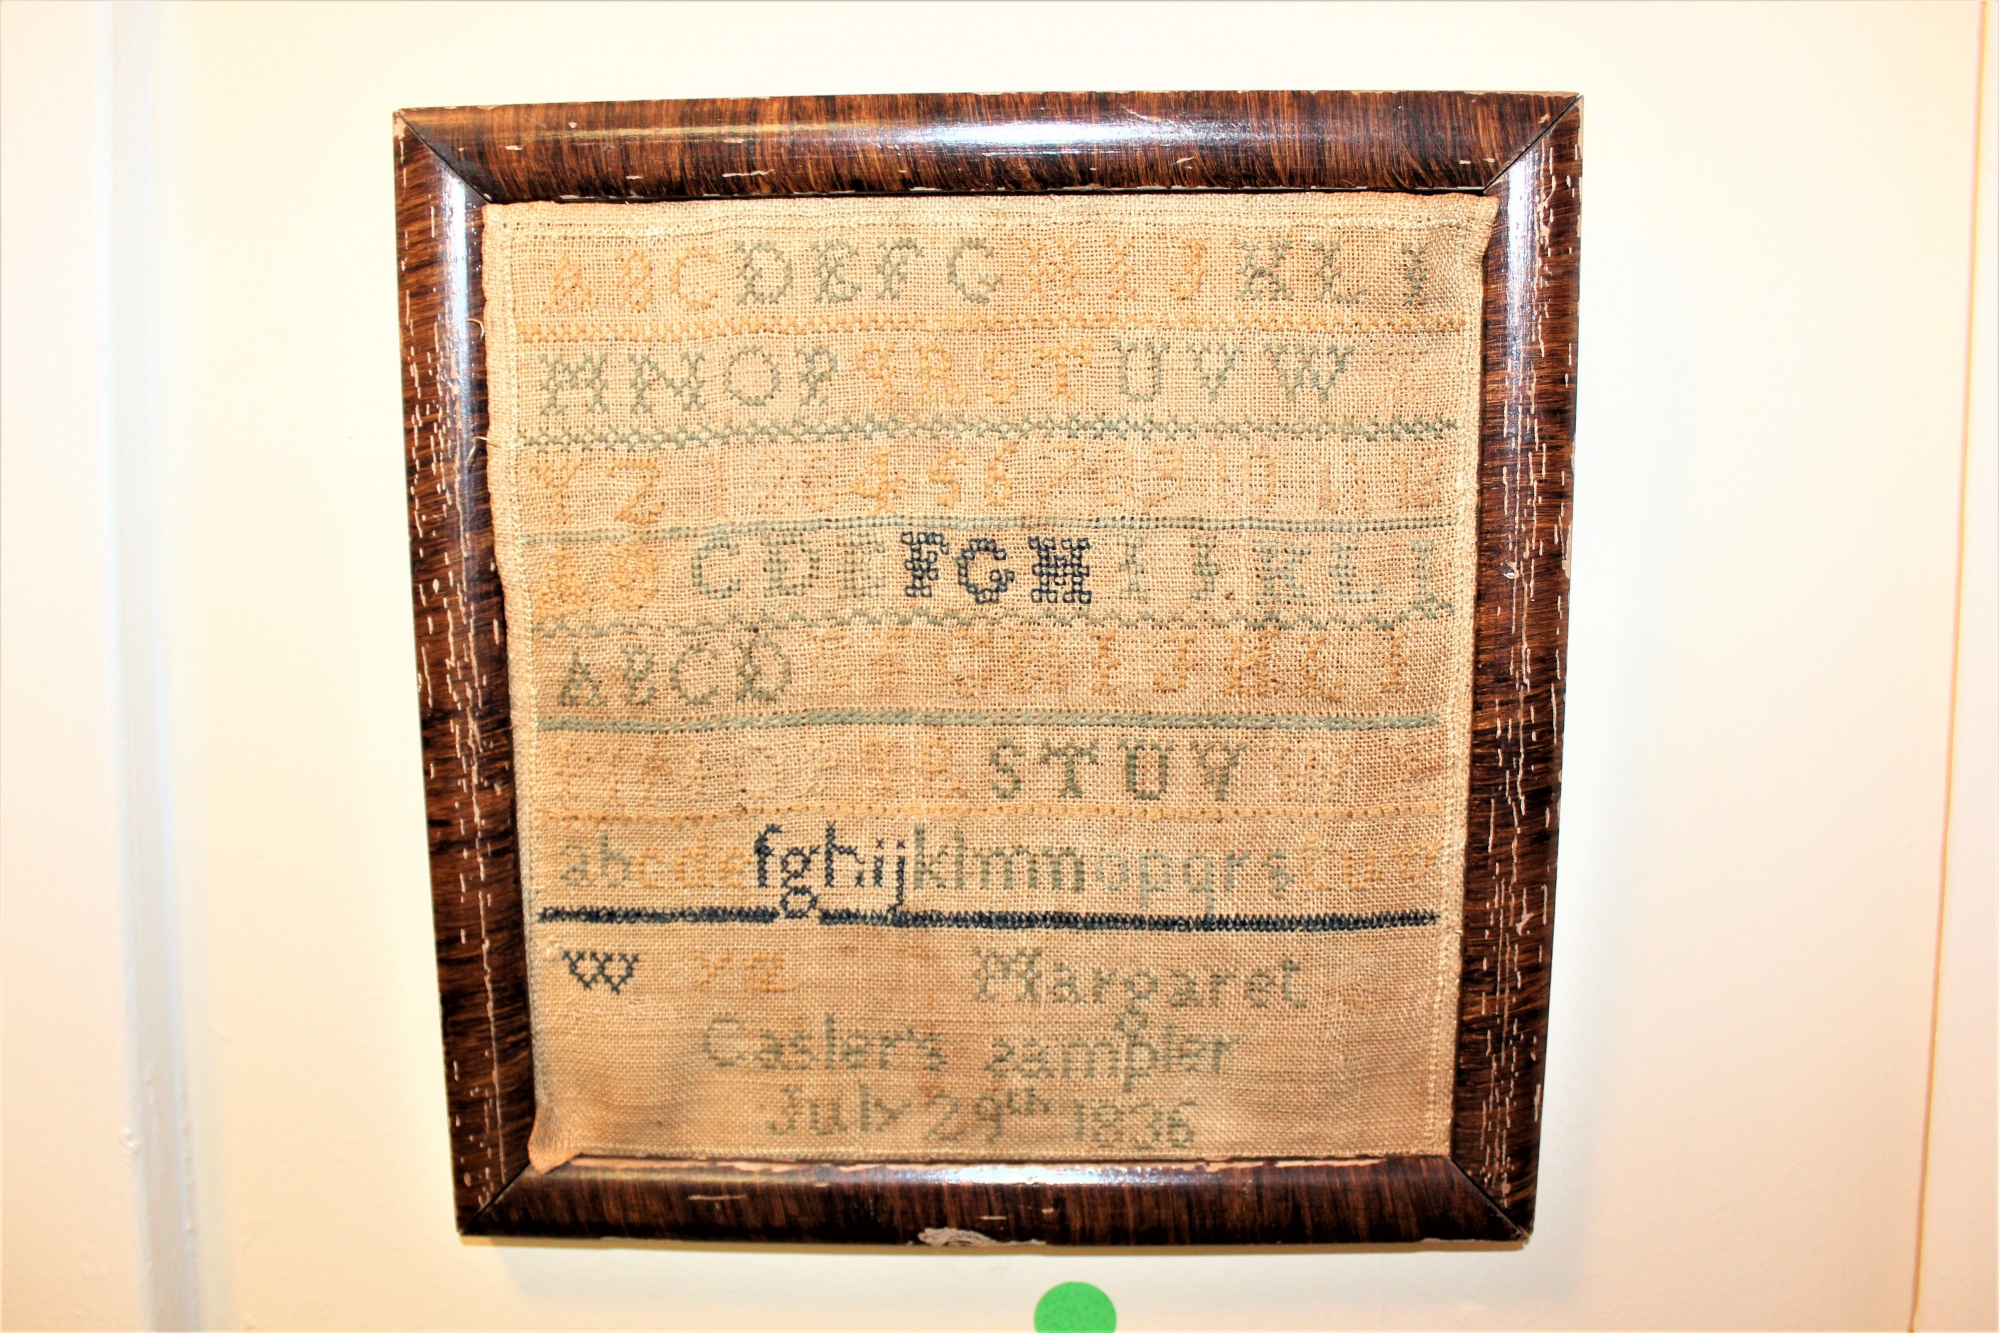 A B C D E F G H I J K L I
M N O P q R S T U V W
Y Z 1 2 3 4 5 6 7 8 9 10 11 12
A B C D E F G H I J K L I
A B C D E F G H I J K L I
M N O P q R S T U V W
a b c d e f g h i j k l m n o p q r s t u v
W Y Z Margaret
Casler's sampler
July 29th 1836